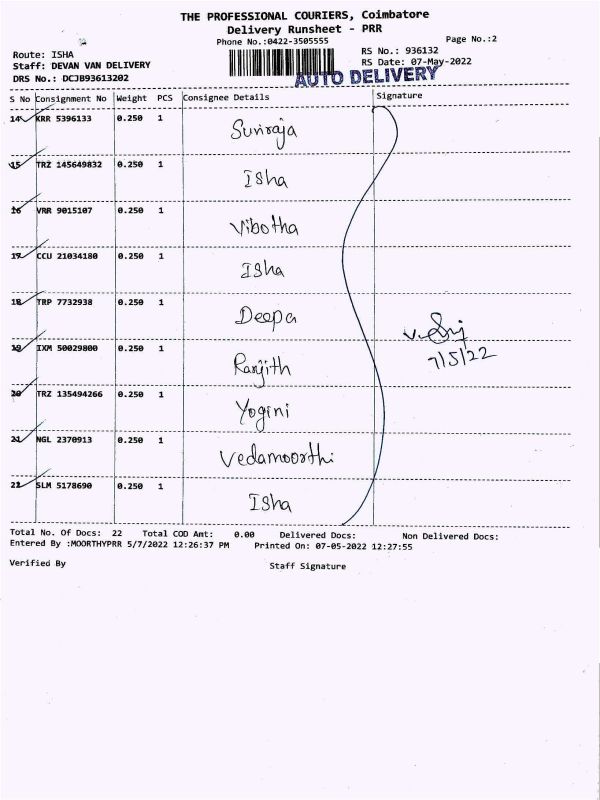 THE PROFESSIONAL COURIERS, Coimbatore
Delivery Runsheet - PRR
Phone No.:0422-3505555
Page No.:2
Route: ISHA
RS No.: 936132
Staff: DEVAN VAN DELIVERY
RS Date: 07-May-2022
DRS No.: DCJB93613202
AUTO DELIVERY
S No Consignment No Weight PCS Consignee Details Signature
14 KRR 5396133 0.250 1
15 TRZ 145649832 0.250 1
Isha
16 VRR 9015107 0.250 1
Vibotha
17 CCU 21034180 0.250 1
Isha
18 TRP 7732938 0.250 1
Deepa
19 IXM 50029800 0.250 1
Ranjith
7/5/22
20 TRZ 135494266 0.250 1
Yogini
21 NGL 2370913 0.250 1
Vedamoorthi
22 SLM 5178690 0.250 1
Isha
Total No. Of Docs: 22 Total COD Amt: 0.00 Delivered Docs: Non Delivered Docs:
Entered By :MOORTHYPRR 5/7/2022 12:26:37 PM Printed On: 07-05-2022 12:27:55
Verified By Staff Signature